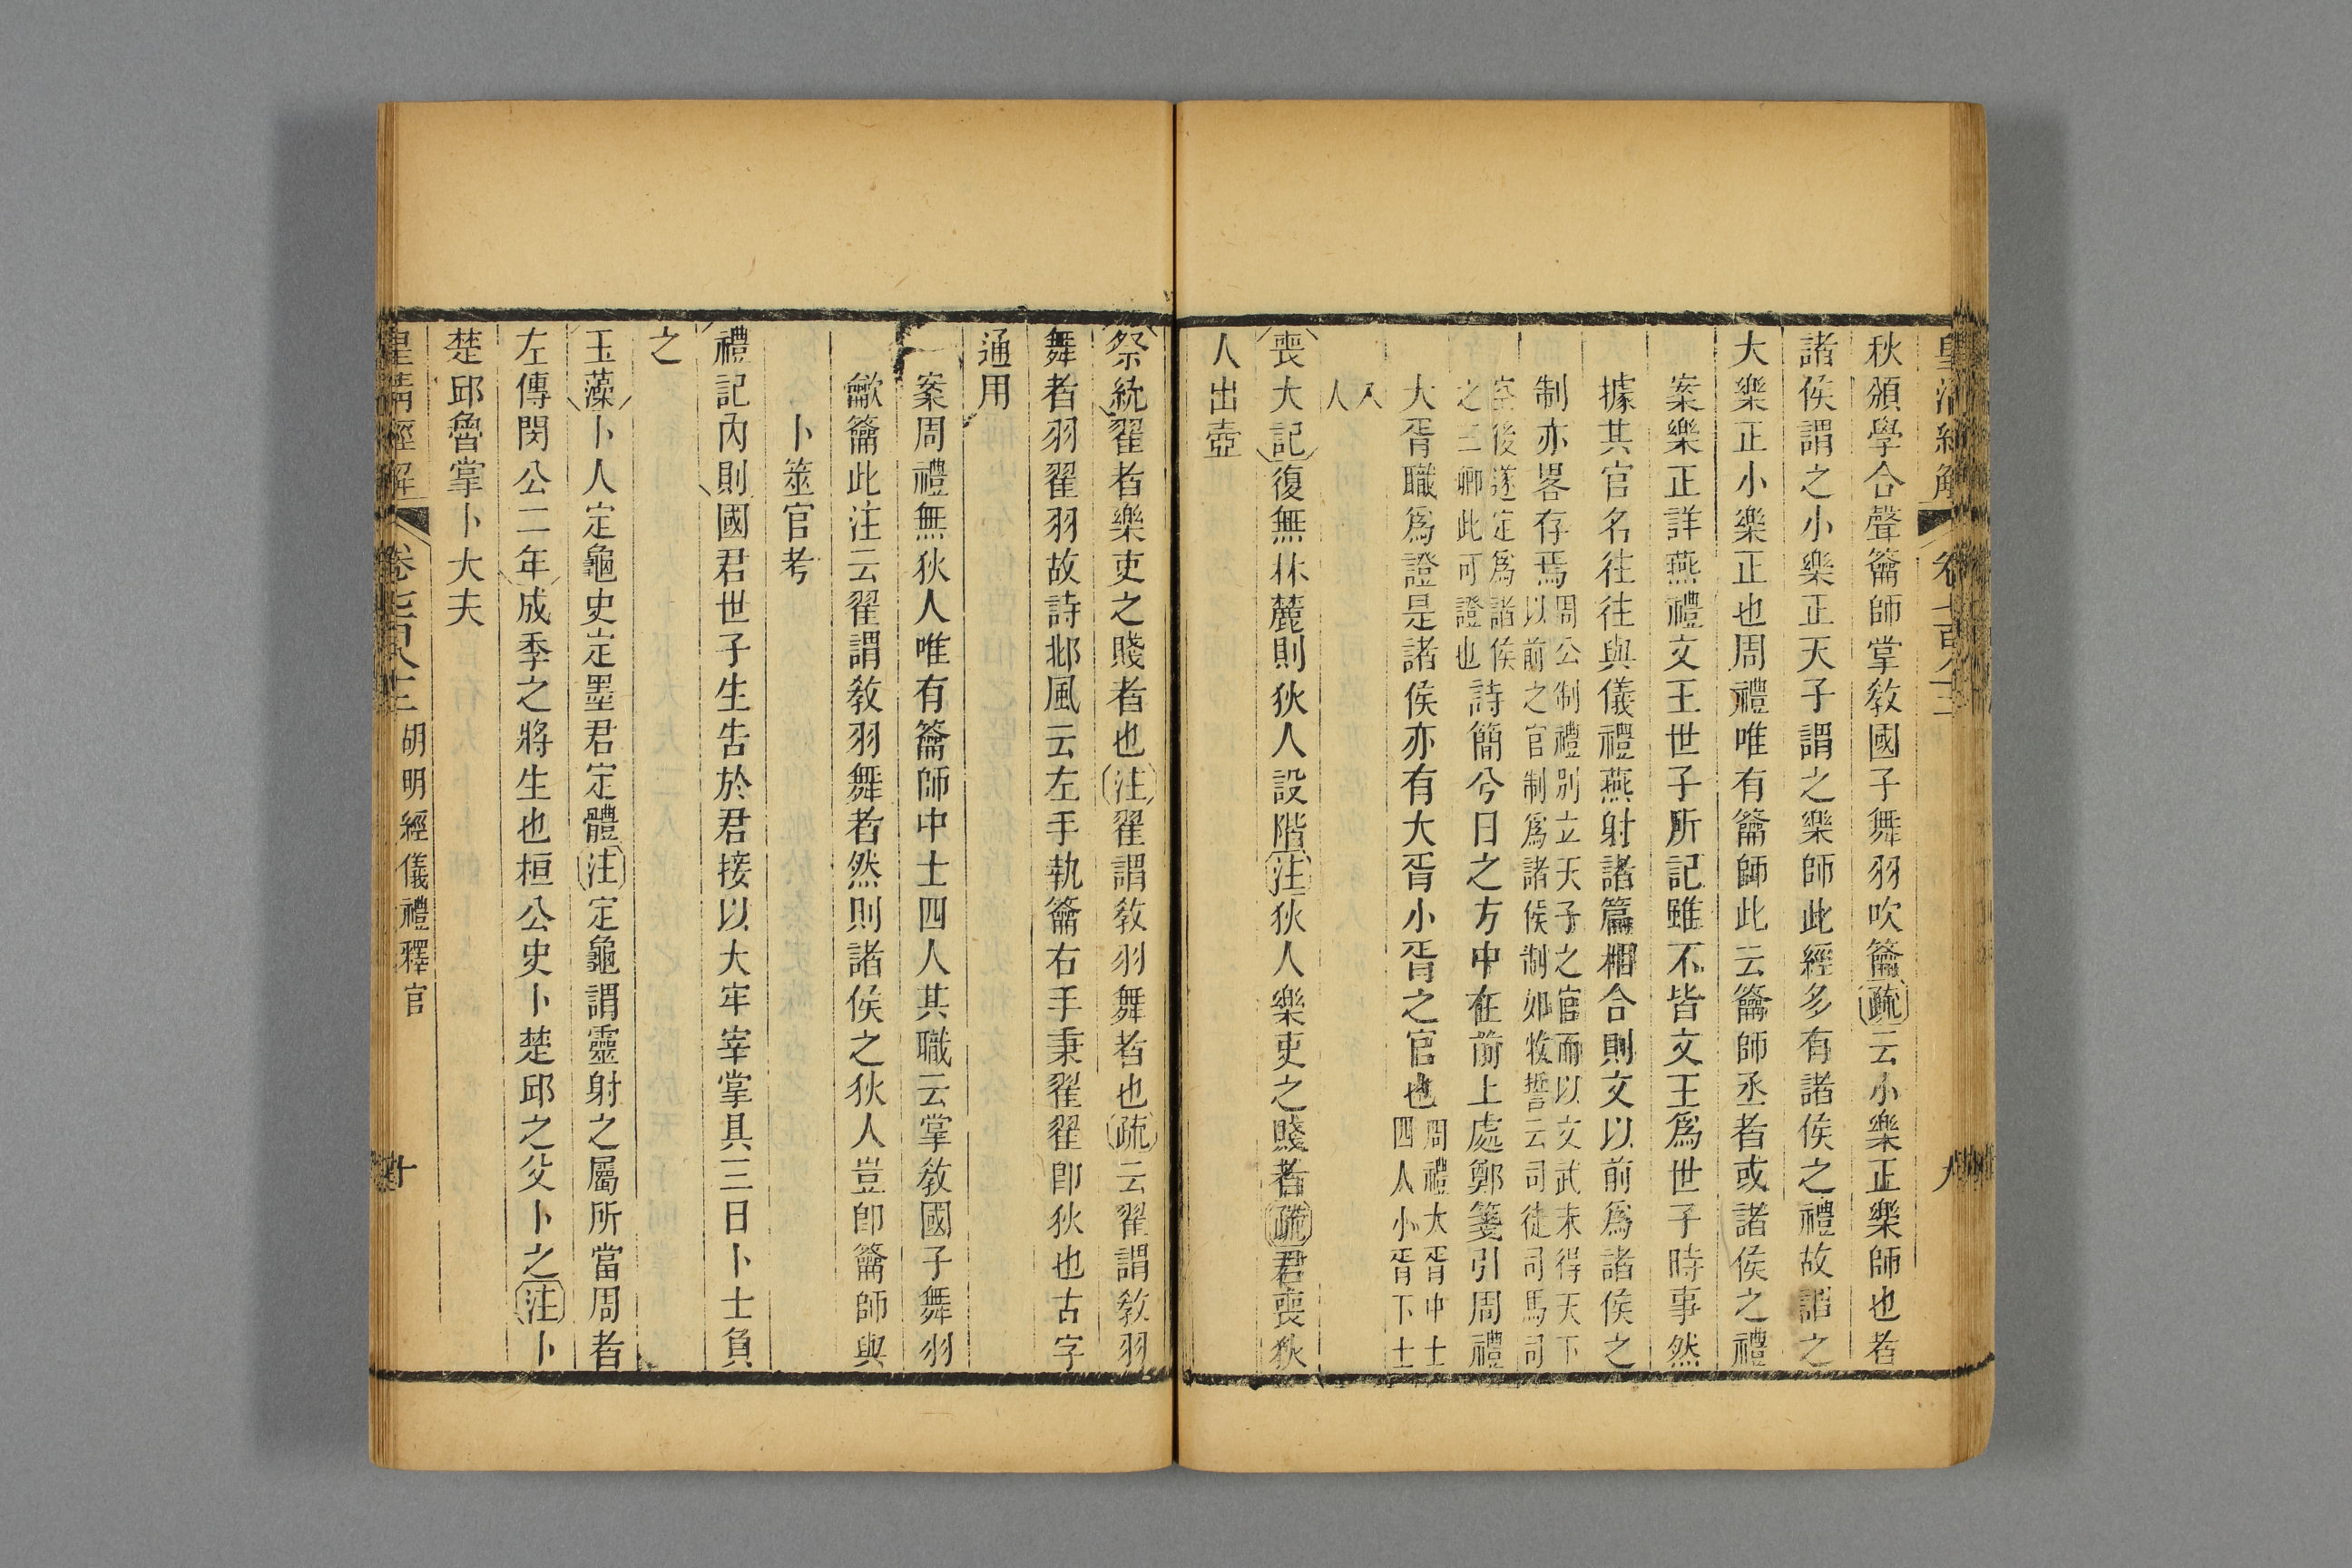 皇清經解 卷七百八十三 九
秋頒學合聲籥師掌教國子舞羽吹籥疏云小樂正樂師也者
諸侯謂之小樂正天子謂之樂師此經多有諸侯之禮故謂之
大樂正小樂正也周禮唯有籥師此云籥師丞者或諸侯之禮
案樂正詳燕禮文王世子所記雖不皆文王爲世子時事然
據其官名往往與儀禮燕射諸篇相合則文以前爲諸侯之
制亦畧存焉周公制禮別立天子之官而以文武未得天下
以前之官制爲諸侯制郊牧誓云司徒司馬司
空後遂定爲諸侯
之三卿此可證也詩簡兮日之方中在前上處鄭箋引周禮
大胥職爲證是諸侯亦有大胥小胥之官也周禮大胥中士
四人小胥下士
八
人
喪大記復無林麓則狄人設階注狄人樂吏之賤者疏君喪狄
人出壺
祭統翟者樂吏之賤者也注翟謂教羽舞者也疏云翟謂教羽
舞者羽翟羽故詩邶風云左手執籥右手秉翟翟卽狄也古字
通用
案周禮無狄人唯有籥師中士四人其職云掌教國子舞羽
龡籥此注云翟謂教羽舞者然則諸侯之狄人豈卽籥師與
卜筮官考
禮記內則國君世子生告於君接以大牢宰掌具三日卜士負
之
玉藻卜人定龜史定墨君定體注定龜謂靈射之屬所當周者
左傳閔公二年成季之將生也桓公史卜楚邱之父卜之注卜
楚邱魯掌卜大夫
皇清經解 卷七百八十三 胡明經儀禮釋官 十